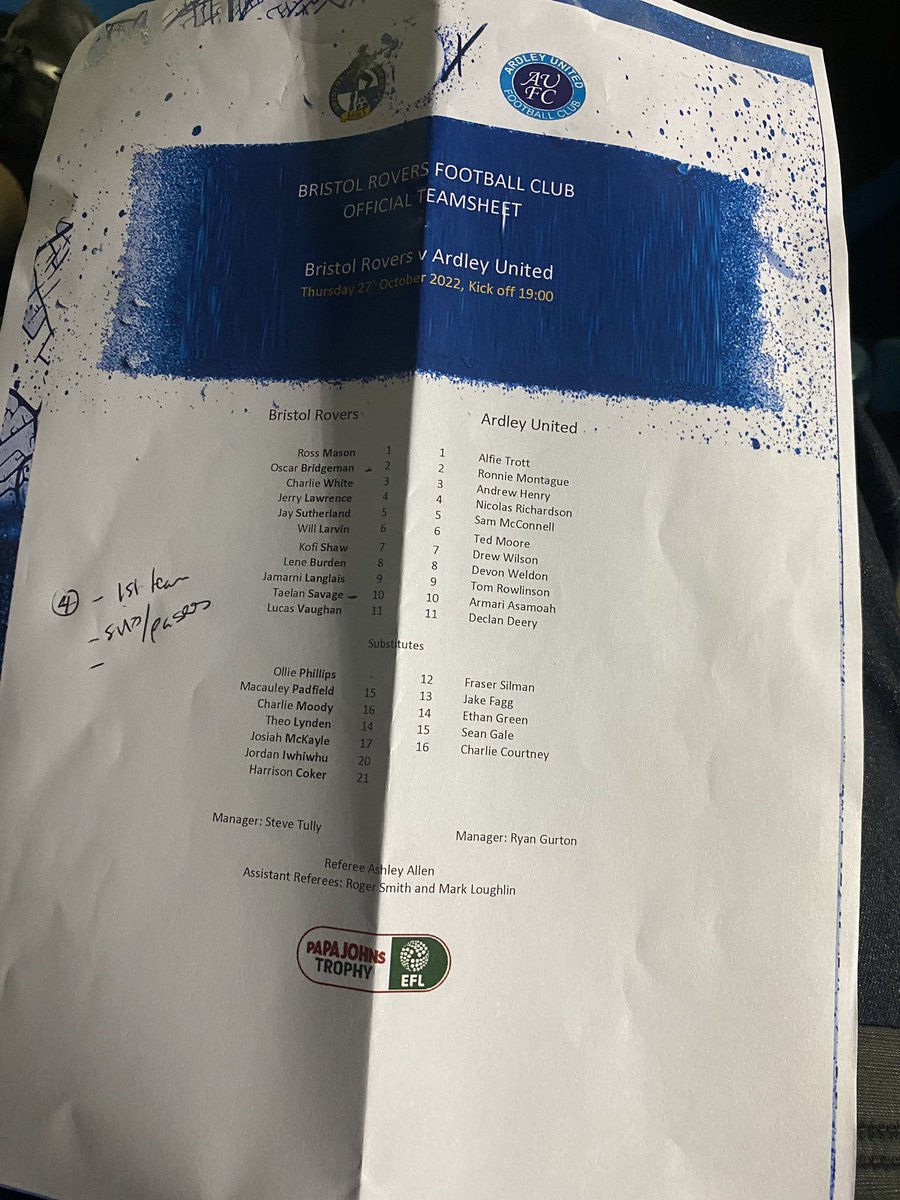 ARDLEY UNITED
AU
FC
FOOTBALL CLUB
1883
BRISTOL ROVERS FOOTBALL CLUB
OFFICIAL TEAMSHEET
Bristol Rovers v Ardley United
Thursday 27th October 2022, Kick off 19:00
Bristol Rovers
Ross Mason 1
Oscar Bridgeman 2
Charlie White 3
Jerry Lawrence 4
Jay Sutherland 5
Will Larvin 6
Kofi Shaw 7
Lene Burden 8
Jamarni Langlais 9
Taelan Savage 10
Lucas Vaughan 11
Ardley United
1 Alfie Trott
2 Ronnie Montague
3 Andrew Henry
4 Nicolas Richardson
5 Sam McConnell
6 Ted Moore
7 Drew Wilson
8 Devon Weldon
9 Tom Rowlinson
10 Armari Asamoah
11 Declan Deery
④ - 1st team
Substitutes
Ollie Phillips -
Macauley Padfield 15
Charlie Moody 16
Theo Lynden 14
Josiah McKayle 17
Jordan Iwhiwhu 20
Harrison Coker 21
12 Fraser Silman
13 Jake Fagg
14 Ethan Green
15 Sean Gale
16 Charlie Courtney
Manager: Steve Tully
Manager: Ryan Gurton
Referee Ashley Allen
Assistant Referees: Roger Smith and Mark Loughlin
PAPA JOHNS
TROPHY
EFL